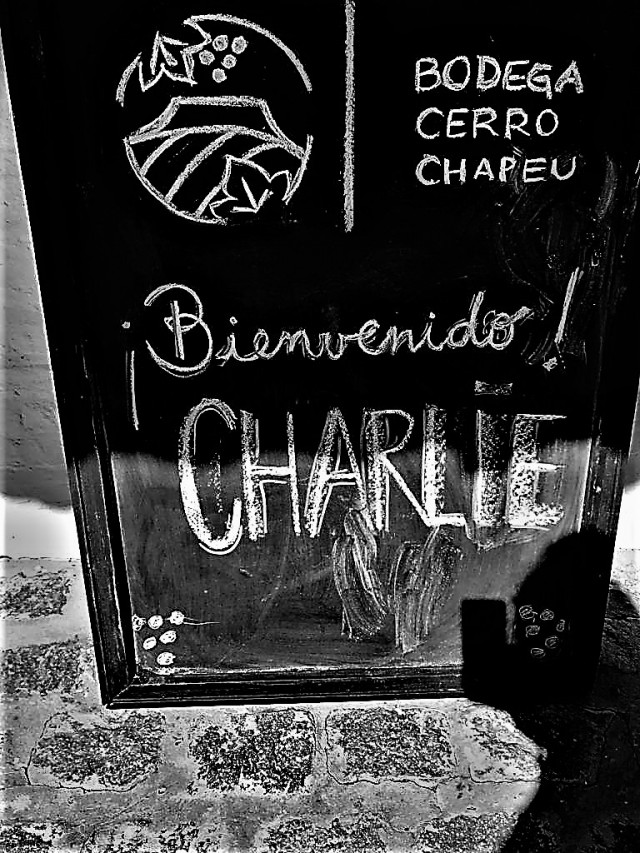 BODEGA
CERRO
CHAPEU
¡Bienvenido!
CHARLIE